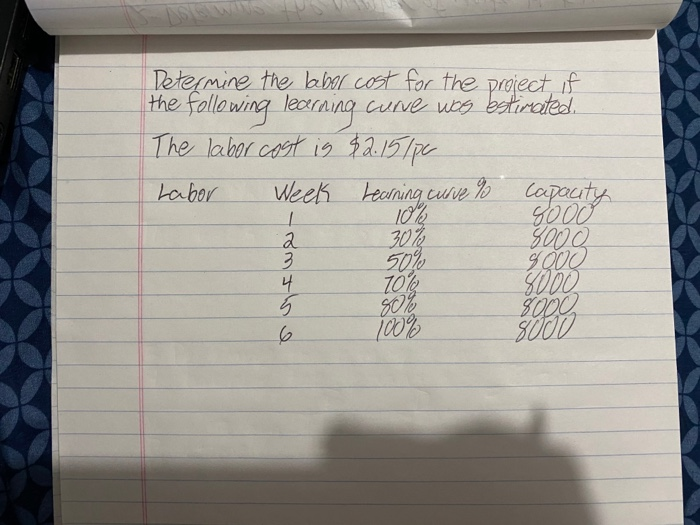 Determine the labor cost for the project if
the following learning curve was estimated.
The labor cost is $2.15/pc
Labor Week Learning curve % Capacity
1 10% 8000
2 30% 8000
3 50% 8000
4 70% 8000
5 80% 8000
6 100% 8000